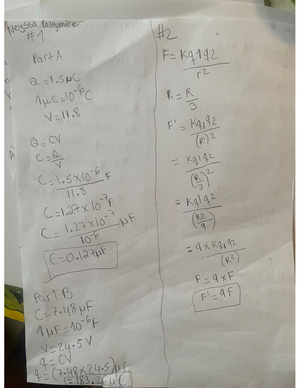 Neyssa Polymice
#1
Part A
Q = 1.5μC
1μC = 10⁻⁶C
V = 11.8
Q = CV
C = Q/V
C = 1.5×10⁻⁶/11.8 F
C = 1.27×10⁻⁷F
C = 1.27×10⁻⁷/10⁻⁶ μF
C = 0.127μF
Part B
C = 7.48μF
1μF = 10⁻⁶F
V = 24.5V
q = CV
q = (7.48×24.5)μC
#2
F = Kq1q2/r²
R = R/3
F' = Kq1q2/(R')²
= Kq1q2/(R/3)²
= Kq1q2/(R2/9)
= 9×Kq1q2/(R²)
F = 9×F
F' = 9F